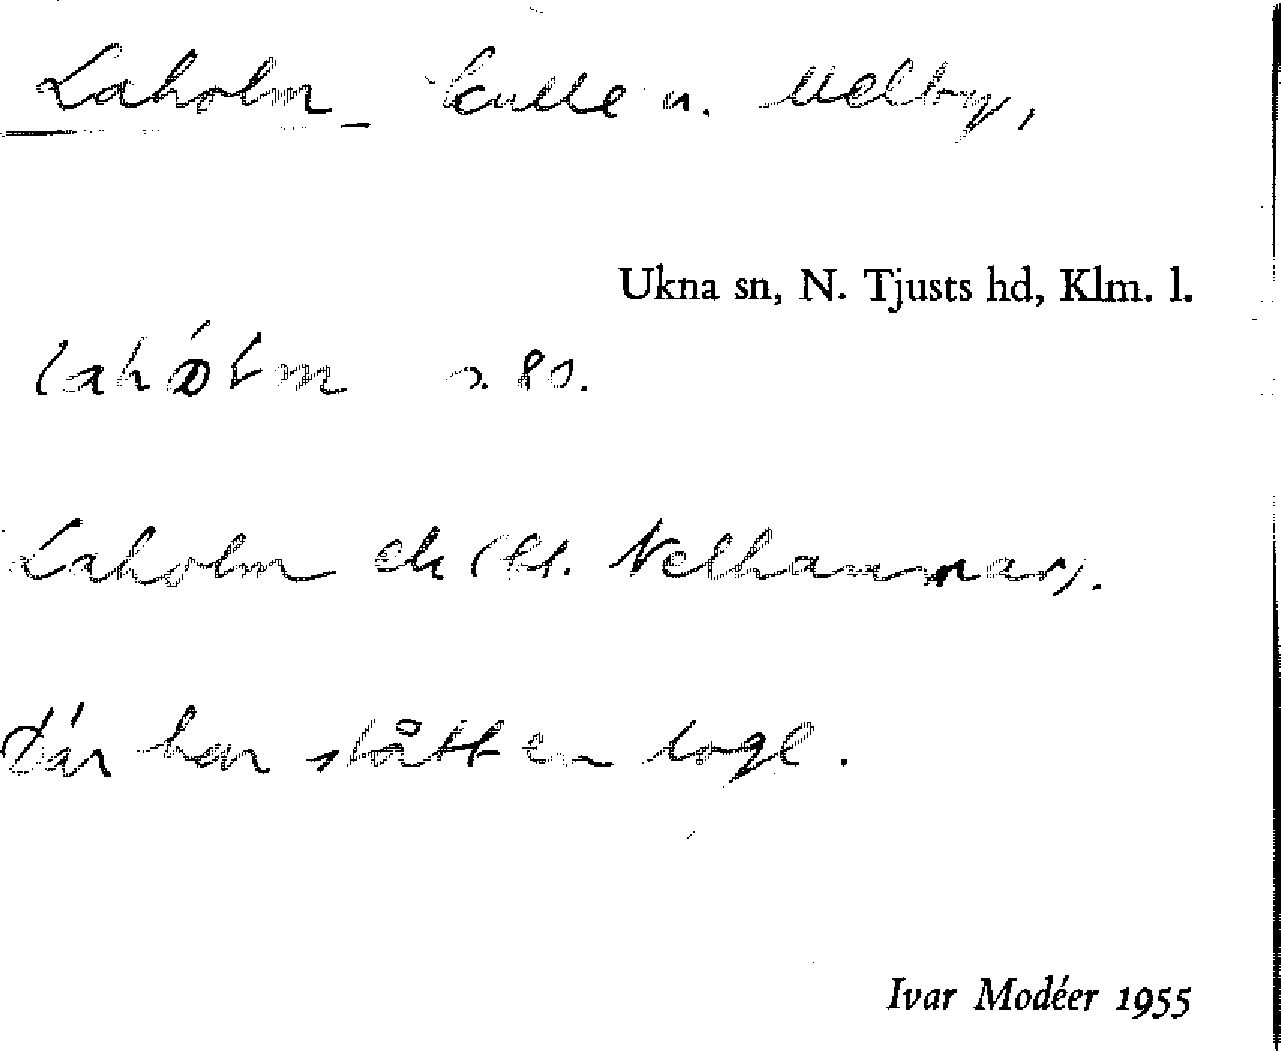 Laholm kulle n. Melby,
Ukna sn, N. Tjusts hd, Klm. l.
lahólm s. 80.
Laholm ek (bl. Nelhammar).
Där har stått en loge.
Ivar Modéer 1955